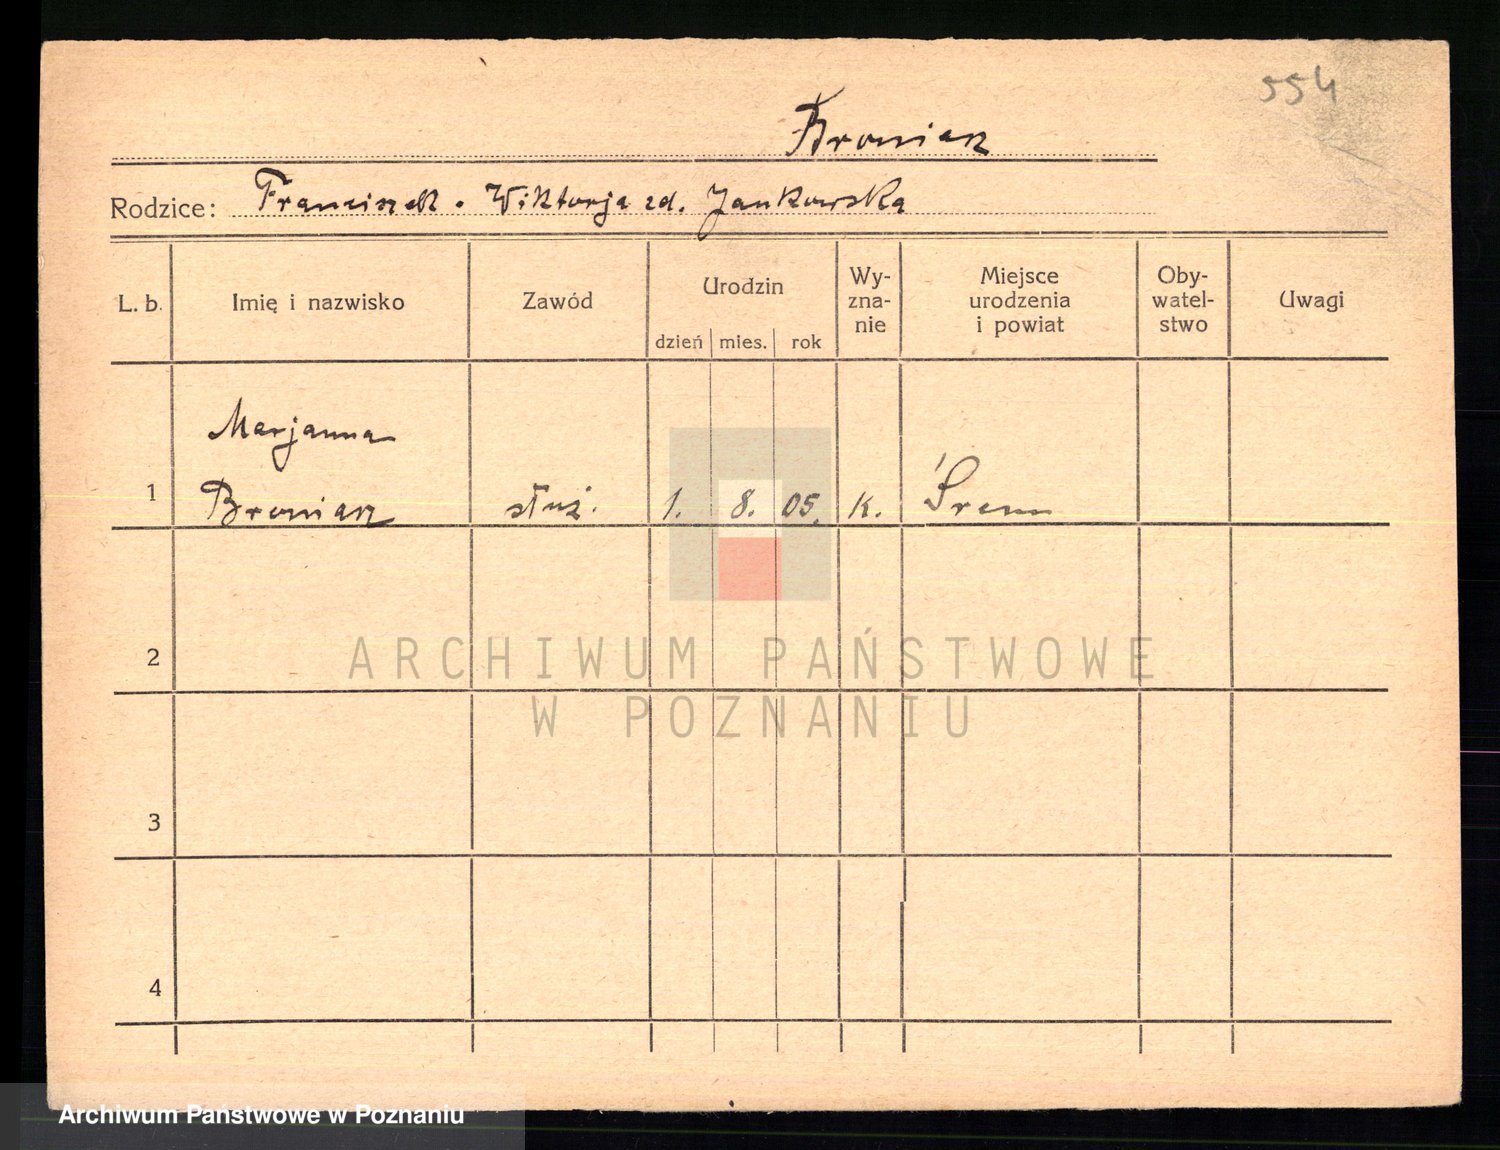 554
Broniarz
Rodzice: Franciszek . Wiktorja zd. Jankowska
L. b. Imię i nazwisko Zawód Urodzin dzień mies. rok Wy-zna-nie Miejsce urodzenia i powiat Oby-watel-stwo Uwagi
Marjanna
1 Broniarz służ. 1. 8. 05. k. Śrem
2
ARCHIWUM PAŃSTWOWE
W POZNANIU
3
4
Archiwum Państwowe w Poznaniu